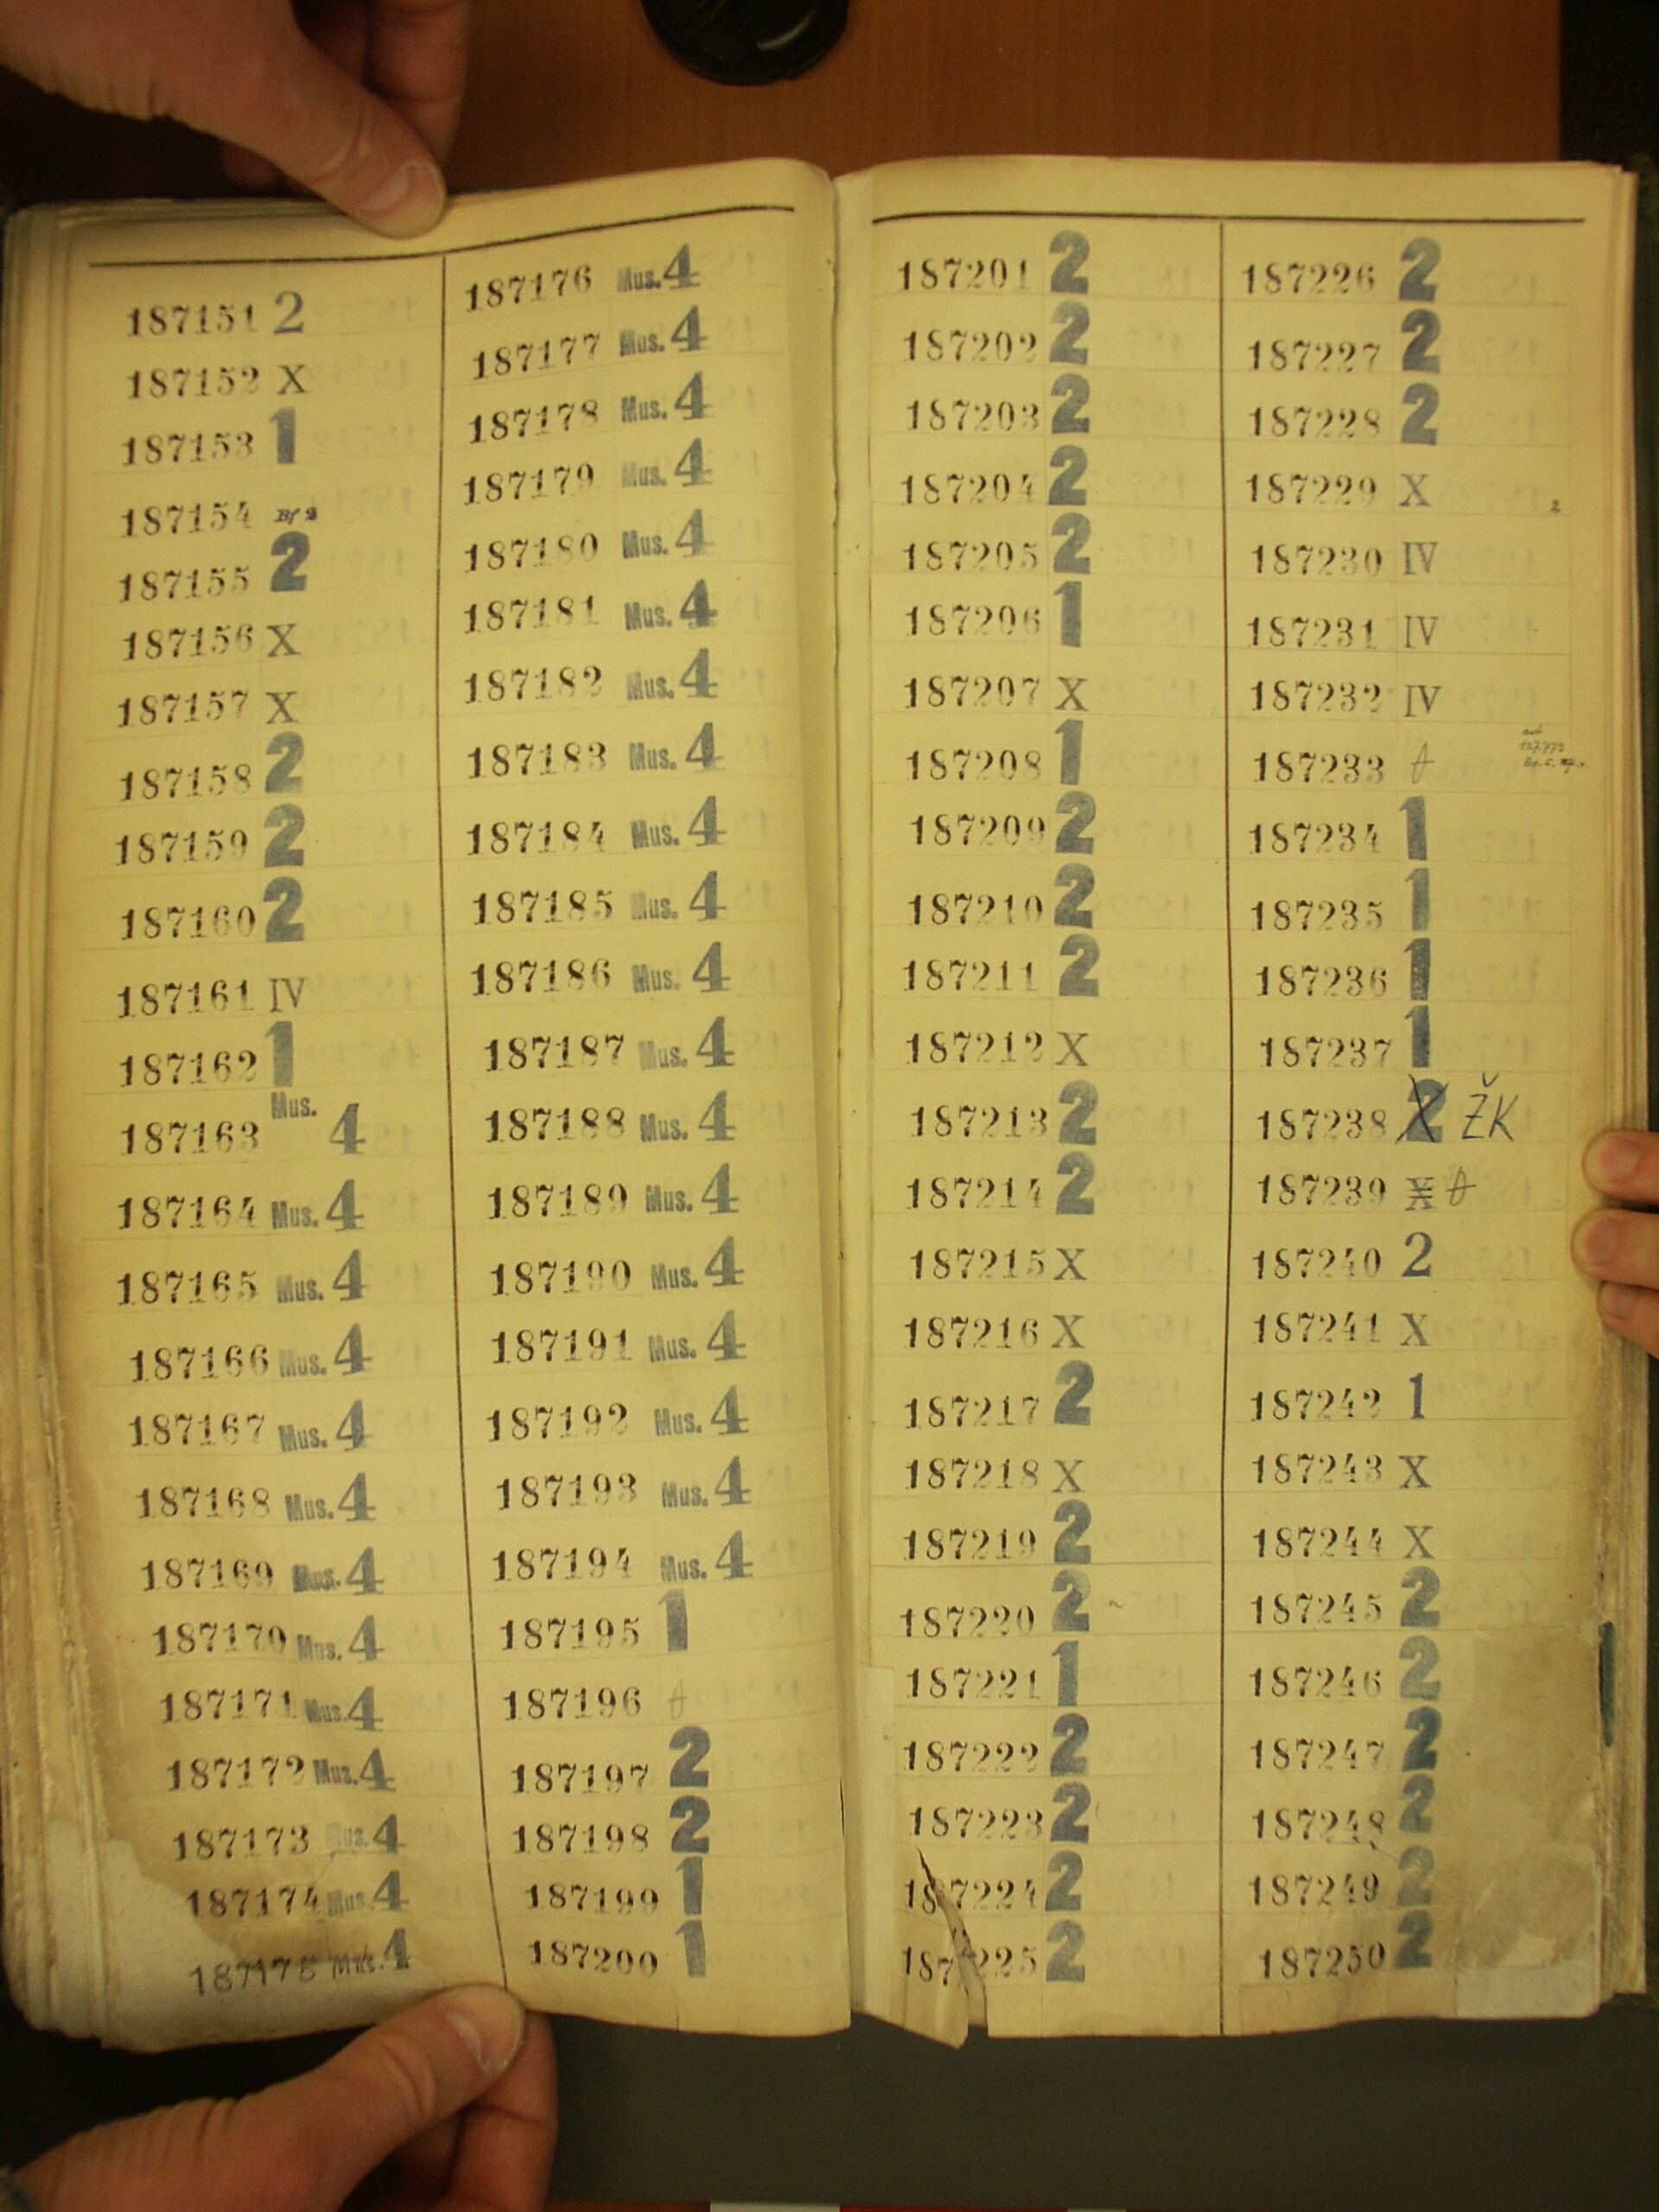 187151 2
187152 X
187153 1
187154 Bf 2
187155 2
187156 X
187157 X
187158 2
187159 2
187160 2
187161 IV
187162 1
187163 Mus. 4
187164 Mus. 4
187165 Mus. 4
187166 Mus. 4
187167 Mus. 4
187168 Mus. 4
187169 Mus. 4
187170 Mus. 4
187171 Mus. 4
187172 Mus. 4
187173 Mus. 4
187174 Mus. 4
187175 Mus. 4
187176 Mus. 4
187177 Mus. 4
187178 Mus. 4
187179 Mus. 4
187180 Mus. 4
187181 Mus. 4
187182 Mus. 4
187183 Mus. 4
187184 Mus. 4
187185 Mus. 4
187186 Mus. 4
187187 Mus. 4
187188 Mus. 4
187189 Mus. 4
187190 Mus. 4
187191 Mus. 4
187192 Mus. 4
187193 Mus. 4
187194 Mus. 4
187195 1
187196
187197 2
187198 2
187199 1
187200 1
187201 2
187202 2
187203 2
187204 2
187205 2
187206 1
187207 X
187208 1
187209 2
187210 2
187211 2
187212 X
187213 2
187214 2
187215 X
187216 X
187217 2
187218 X
187219 2
187220 2
187221 1
187222 2
187223 2
187224 2
187225 2
187226 2
187227 2
187228 2
187229 X 2
187230 IV
187231 IV
187232 IV
187233
187234 1
187235 1
187236 1
187237 1
187238 2 ŽK
187239 X
187240 2
187241 X
187242 1
187243 X
187244 X
187245 2
187246 2
187247 2
187248 2
187249 2
187250 2